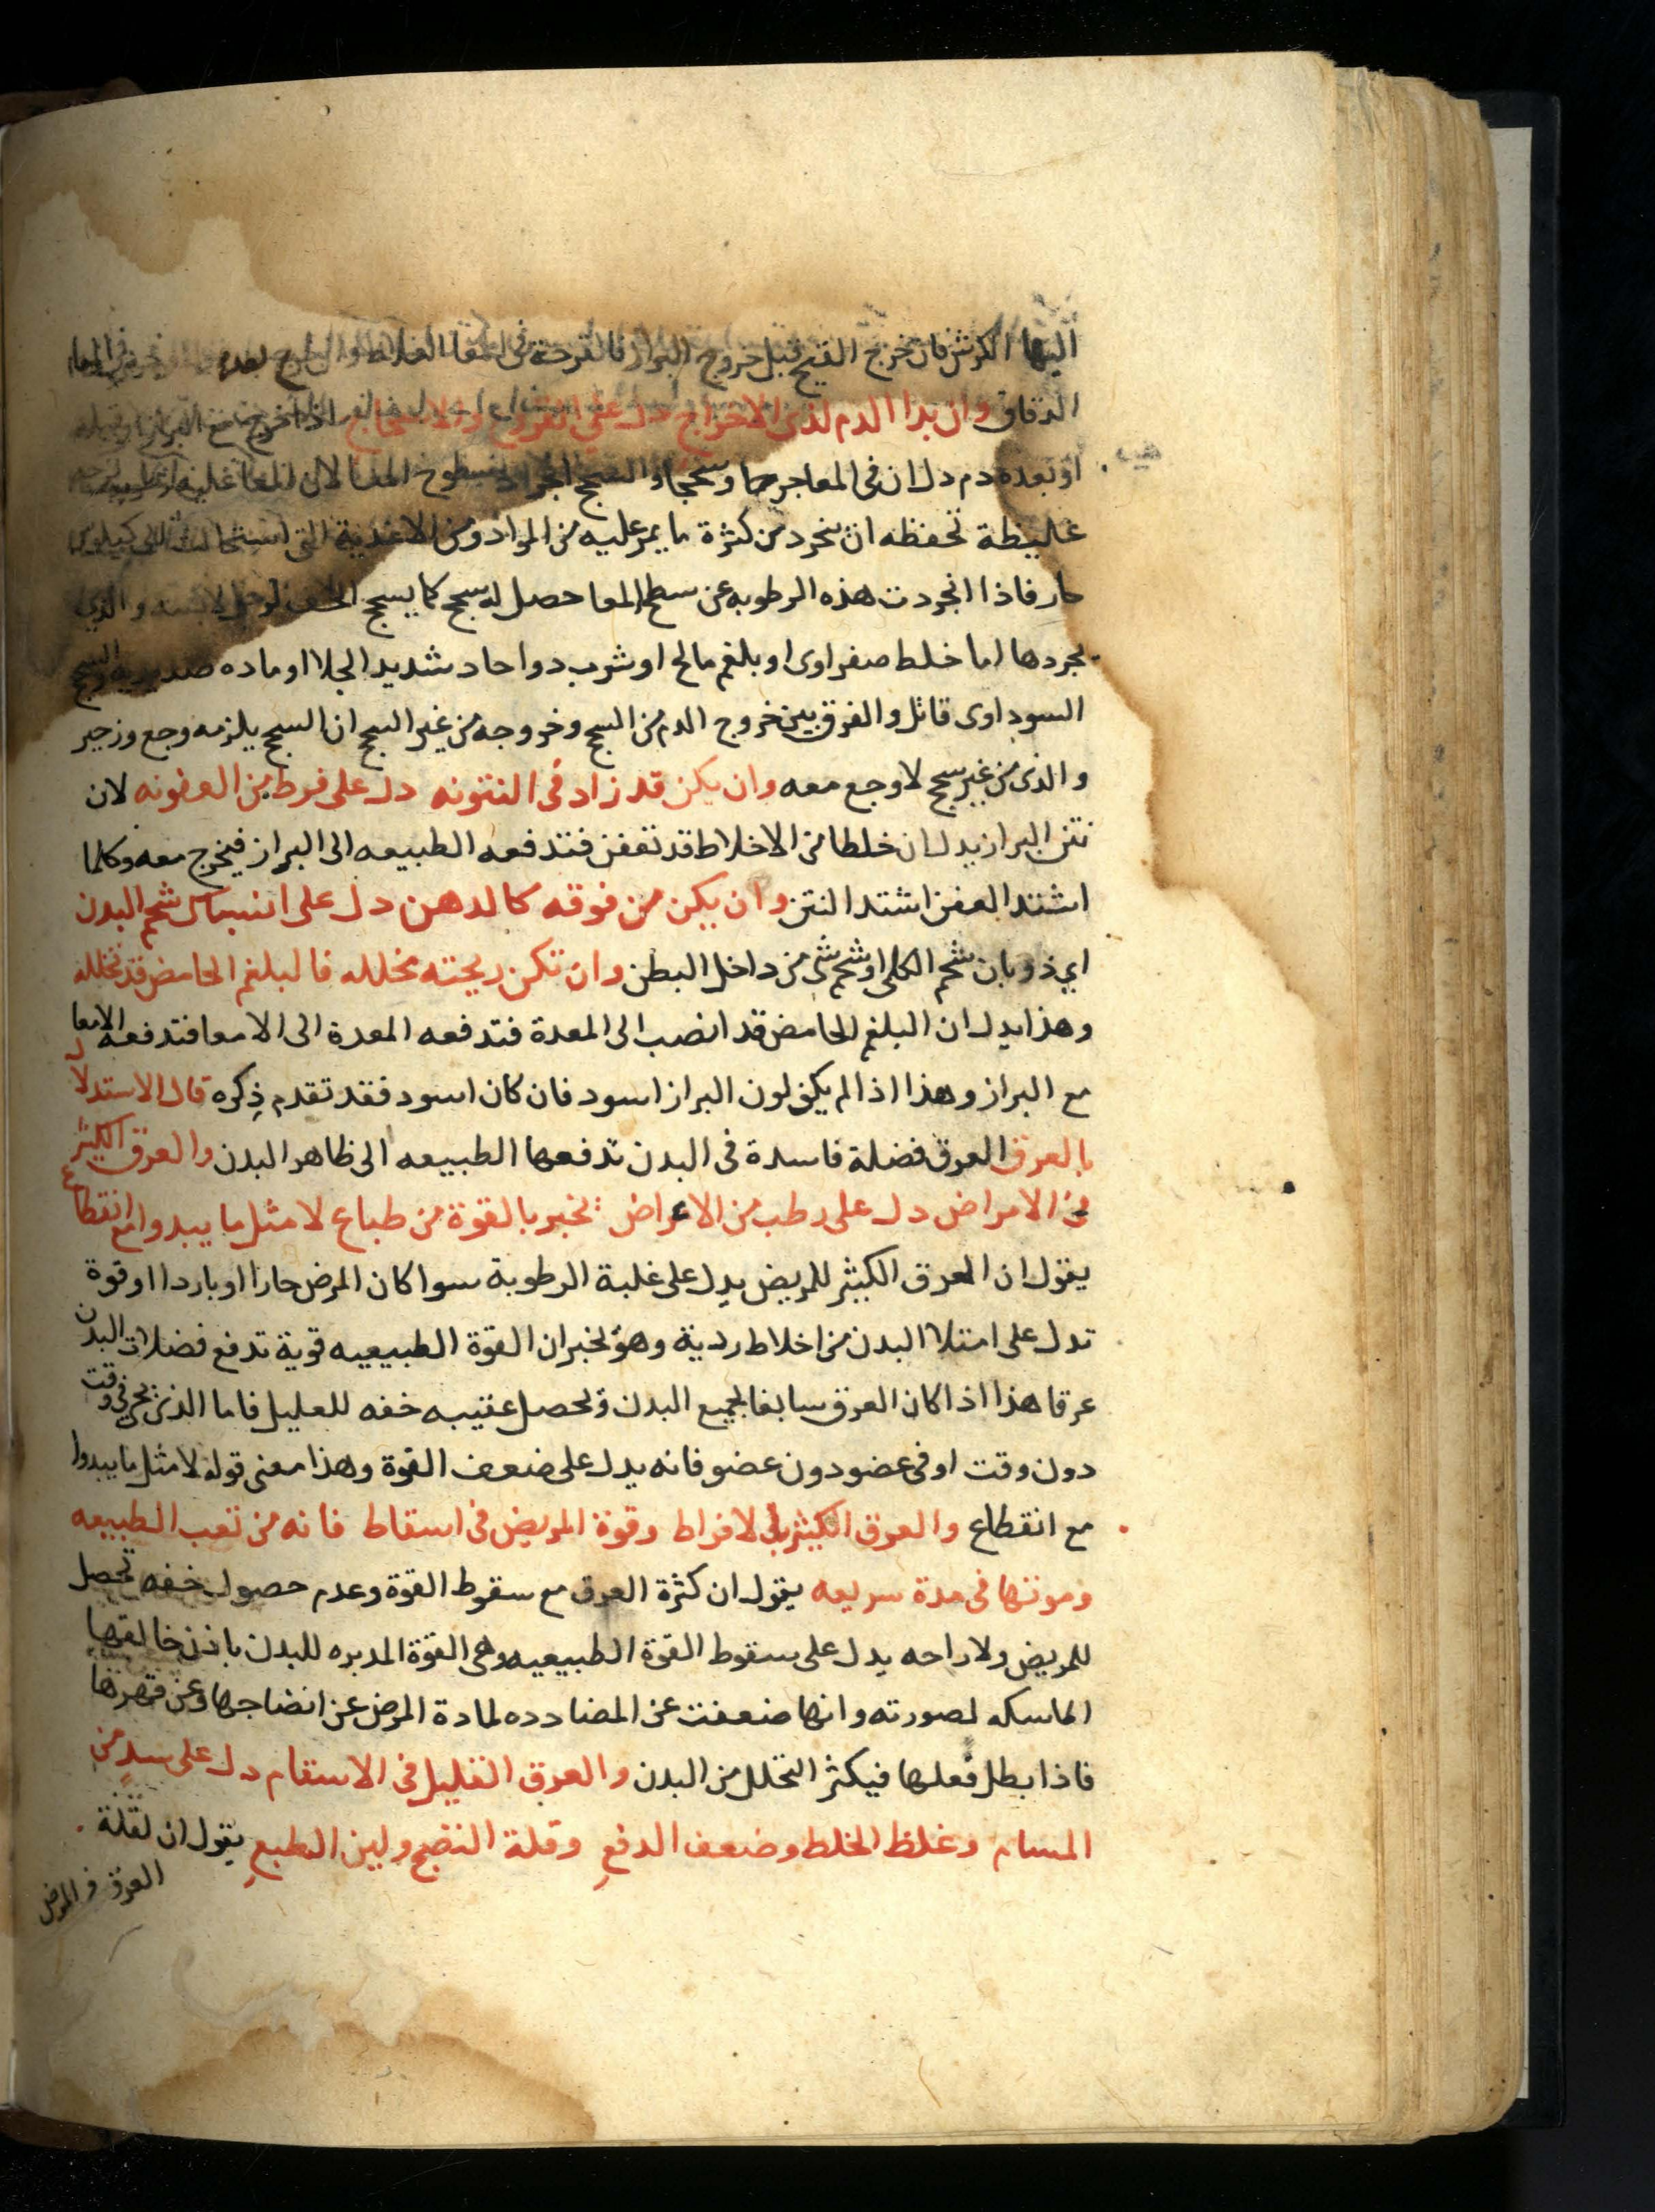 اليها الكرش فان خرج القيح قبل خروج البراز فالقرحة فى المعا الغلاظ وان خرج بعده
الدقاق وان بدا الدم لذى الاخراج دل على القروح والانسحاج اذا خرج مع البراز او قبله
او بعده دم دل ان فى المعا جرحا وسحجا والسحج انجراد سطوح المعا لان المعا عليه رطوبه
غليظة تحفظه ان ينجرد من كثرة ما يمر عليه من المواد ومن الاغدية التى استحالت الى كيلوس
حار فاذا انجردت هذه الرطوبه عن سطح المعا حصل له سحج كما يسحج الخف لرجل لابسه والذي
يجردها اما خلط صفراوى او بلغم مالح او شرب دوا حاد شديد الجلا او ماده صديديه والسحج
السوداوى قاتل والفرق بين خروج الدم من السحج وخروجه من غير السحج ان السحج يلزمه وجع وزحير
والذى من غير سحج لا وجع معه وان يكن قد زاد فى النتونه دل على فرط من العفونه لان
نتن البراز يدل ان خلطا من الاخلاط قد تعفن فتدفعه الطبيعه الى البراز فيخرج معه وكلما
اشتد العفن اشتد النتن وان يكن من فوقه كالدهن دل على انسباك شحم البدن
اي ذوبان شحم الكلى او شحم شى من داخل البطن وان تكن ريحته مخلله فالبلغم الحامض قد تخلله
وهذا يدل ان البلغم الحامض قد انصب الى المعدة فتدفعه المعدة الى الامعا فتدفعه الامعا
مع البراز وهذا اذا لم يكن لون البراز اسود فان كان اسود فقد تقدم ذكره قال الاستدلال
بالعرق العرق فضلة فاسدة فى البدن تدفعها الطبيعه الى ظاهر البدن والعرق الكثير
فى الامراض دل على رطب من الاعراض يخبر بالقوة من طباع لا مثل ما يبدوا مع انقطاع
يقول ان العرق الكثير للمريض يدل على غلبة الرطوبة سوا كان المرض حارا او باردا او قوة
تدل على امتلا البدن من اخلاط ردية وهو يخبر ان القوة الطبيعيه قوية تدفع فضلات البدن
عرقا هذا اذا كان العرق سابغا لجميع البدن ويحصل عقيبه خفه للعليل فاما الذى يجرى فى وقت
دون وقت او فى عضو دون عضو فانه يدل على ضعف القوة وهذا معنى قوله لا مثل ما يبدوا
مع انقطاع والعرق الكثير بالافراط وقوة المريض فى اسقاط فانه من تعب الطبيعه
وموتها فى مدة سريعه يقول ان كثرة العرق مع سقوط القوة وعدم حصول خفه تحصل
للمريض ولا راحه يدل على سقوط القوة الطبيعيه وهى القوة المدبره للبدن باذن خالقها
الماسكه لصورته وانها ضعفت عن المضادده لمادة المرض عن انضاجها وعن قهرها
فاذا بطل فعلها فيكثر التحلل من البدن والعرق القليل فى الاسقام دل على سدد من
المسام وغلظ الخلط وضعف الدفع وقلة النضج ولين الطبع يقول ان لقلة
العرق فى المرض